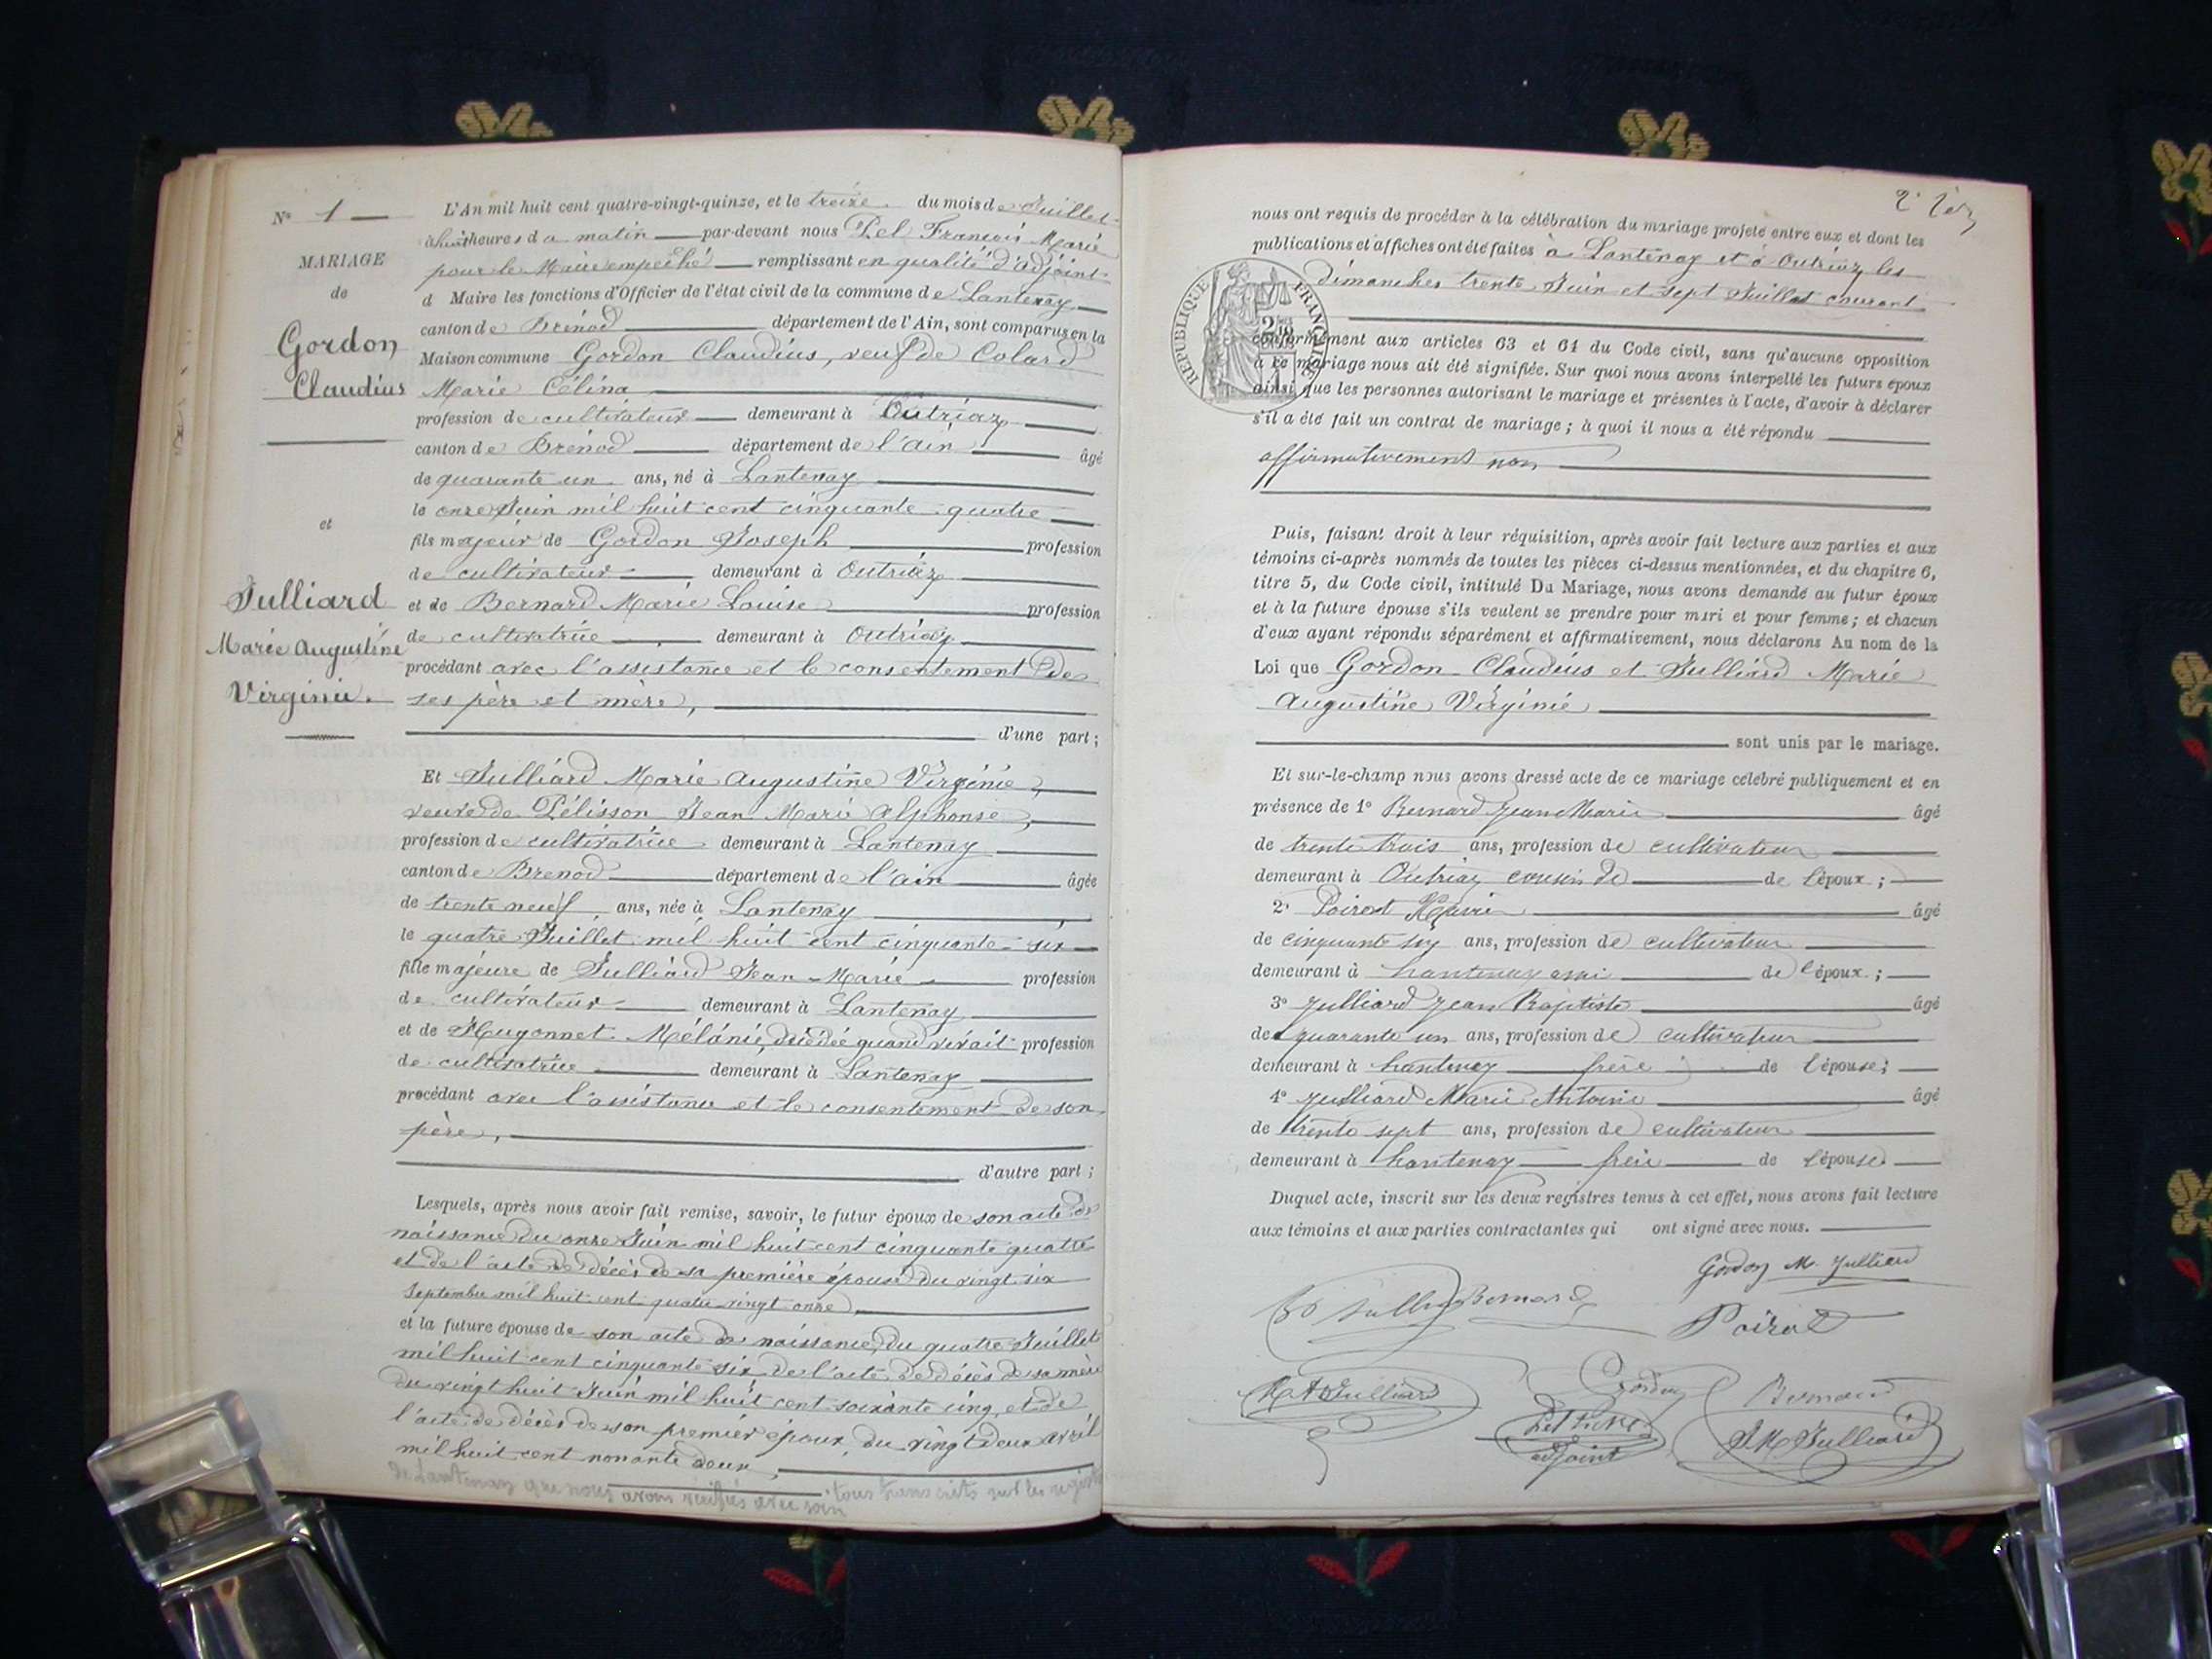 N° 1
MARIAGE
de
Gordon
Claudius
et
Julliard
Marie Augustine
Virginie.
L'An mil huit cent quatre-vingt-quinze, et le treize du mois de Juillet
à huit heures du matin par-devant nous Pel François Marie
pour le Maire empêché remplissant en qualité d'adjoint
d Maire les fonctions d'Officier de l'état civil de la commune de Lantenay
canton de Brénod département de l'Ain, sont comparus en la
Maison commune Gordon Claudius, veuf de Colard
Marie Célina
profession de cultivateur demeurant à Outriaz
canton de Brénod département de l'ain âgé
de quarante un ans, né à Lantenay
le onze Juin mil huit cent cinquante quatre
fils majeur de Gordon Joseph profession
de cultivateur demeurant à Outriaz
et de Bernard Marie Louise profession
de cultivatrice demeurant à Outriaz
procédant avec l'assistance et le consentement de
ses père et mère,
d'une part ;
Et Julliard Marie Augustine Virginie,
veuve de Pélisson Jean Marie Alphonse,
profession de cultivatrice demeurant à Lantenay
canton de Brenod département de l'ain âgée
de trente neuf ans, née à Lantenay
le quatre Juillet mil huit cent cinquante-six
fille majeure de Julliard Jean-Marie profession
de cultivateur demeurant à Lantenay
et de Hugonnet Mélanie, décédée quand vivait profession
de cultivatrice demeurant à Lantenay
procédant avec l'assistance et le consentement de son
père,
d'autre part ;
Lesquels, après nous avoir fait remise, savoir, le futur époux de son acte de
naissance du onze Juin mil huit cent cinquante quatre
et de l'acte de décès de sa première épouse du vingt six
Septembre mil huit cent quatre vingt onze,
et la future épouse de son acte de naissance, du quatre Juillet
mil huit cent cinquante six, de l'acte de décès de sa mère
du vingt huit Juin mil huit cent soixante cinq, et de
l'acte de décès de son premier époux, du vingt deux avril
mil huit cent nonante deux,
tous transcrits sur les registres
de Lantenay que nous avons vérifiés avec soin
nous ont requis de procéder à la célébration du mariage projeté entre eux et dont les
publications et affiches ont été faites à Lantenay et à Outriaz les
dimanches trente Juin et sept Juillet courant
RÉPUBLIQUE FRANÇAISE
conformément aux articles 63 et 64 du Code civil, sans qu'aucune opposition
à ce mariage nous ait été signifiée. Sur quoi nous avons interpellé les futurs époux
ainsi que les personnes autorisant le mariage et présentes à l'acte, d'avoir à déclarer
s'il a été fait un contrat de mariage ; à quoi il nous a été répondu
affirmativement non
Puis, faisant droit à leur réquisition, après avoir fait lecture aux parties et aux
témoins ci-après nommés de toutes les pièces ci-dessus mentionnées, et du chapitre 6,
titre 5, du Code civil, intitulé Du Mariage, nous avons demandé au futur époux
et à la future épouse s'ils veulent se prendre pour mari et pour femme ; et chacun
d'eux ayant répondu séparément et affirmativement, nous déclarons Au nom de la
Loi que Gordon Claudius et Julliard Marie
Augustine Virginie
sont unis par le mariage.
Et sur-le-champ nous avons dressé acte de ce mariage célébré publiquement et en
présence de 1° Bernard Jean Marie âgé
de trente trois ans, profession de cultivateur
demeurant à Outriaz cousin de de l'époux ;
2° Poirot âgé
de cinquante six ans, profession de cultivateur
demeurant à Lantenay ami de l'époux ;
3° Julliard Jean Baptiste âgé
de quarante un ans, profession de cultivateur
demeurant à Lantenay frère de l'épouse ;
4° Julliard Marie Antoine âgé
de trente sept ans, profession de cultivateur
demeurant à Lantenay frère de l'épouse
Duquel acte, inscrit sur les deux registres tenus à cet effet, nous avons fait lecture
aux témoins et aux parties contractantes qui ont signé avec nous.
Gordon M. Julliard
Bernard
Poirot
Julliard
Gordon
Bernard
Pel
adjoint
J M Julliard